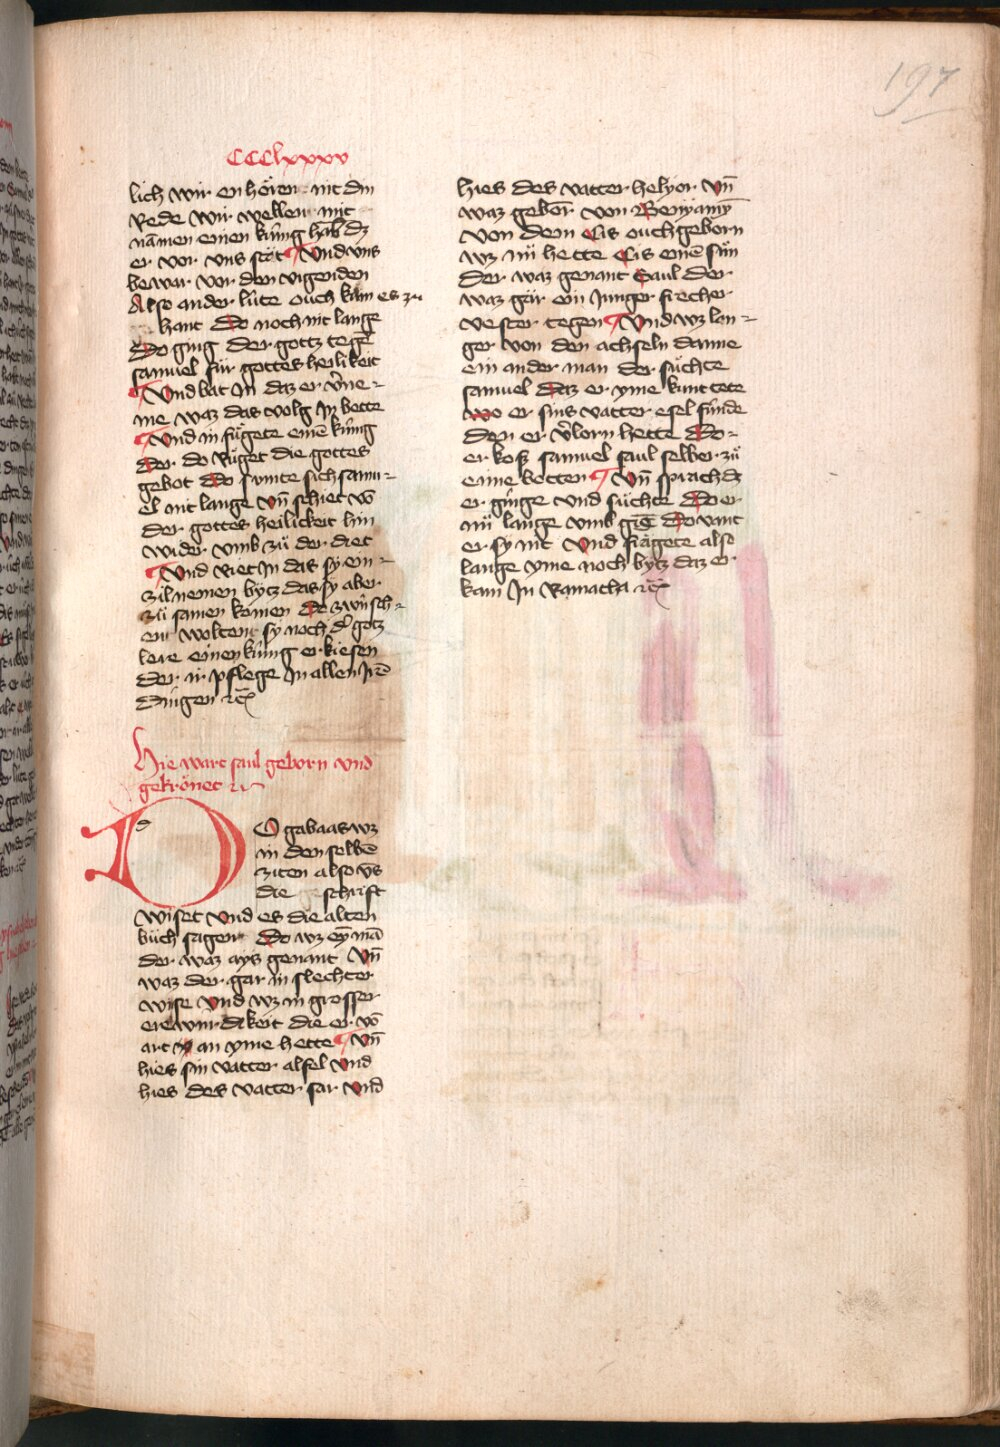 197
CCClxxxv
lich wir en hören nit din
Rede wir wellen mit
námen einen kúnig hab dz
er vor uns stöt Und uns
bewar vor den vigenden
Also ander lúte ouch kam es zu
hant Do noch nit lange
Do ging der gottz tegē
samuel für gottes heilikeit
Und bat In daz er v̄ne-
me waz das volg In bette
Und in fúgete einē kúnig
der do Rúget die gottes
gebot Do sumte sich samu-
el nit lange vn̄ schiet vō
der gottes heilickeit hin
wider vmb zü der diet
Und Riet In das sy ein
zil nemen bytz das sy aber
zü samen kömen Do zwúsch-
ent woltent sy noch d' gotz
lere einen kúnig er kiesen
der ir pflege In allen Irē
dingen ꝛc
Hie wart saul geborn vnd
gekrönet ꝛc
DO gabaas wz
in den selbē
ziten also vn̄s
die schrift
wiset vnd es die alten
büch sagen Do wz eÿ mā
der waz ays genant Vn̄
waz der gar in slechter
wise vnd wz in grosser
erewirdikeit die er vō
art an yme hette Vn̄
hies sin vatter alsel vnd
hies des vatter sar vnd
hies des vatter helyor vn̄
waz geborn von Benyamȳ
von dem Cis ouch geborn
wz nü hette Cis einē sün
der waz genant Saul der
waz gar ein Junger frecher
vester tegen Und wz len-
ger von den achseln danne
ein ander man der süchte
samuel daz er yme kunt tete
wo er sins vatter esel fúnde
den er v̄lorn hette Do
er kos samuel saul selber zü
eime botten Vn̄ sprach dz
er ginge vnd süchte Do er
nü lange vmb gīg Do vant
er sy nit Und fragete alse
lange yme noch bytz daz er
kam In Ramatha ꝛc